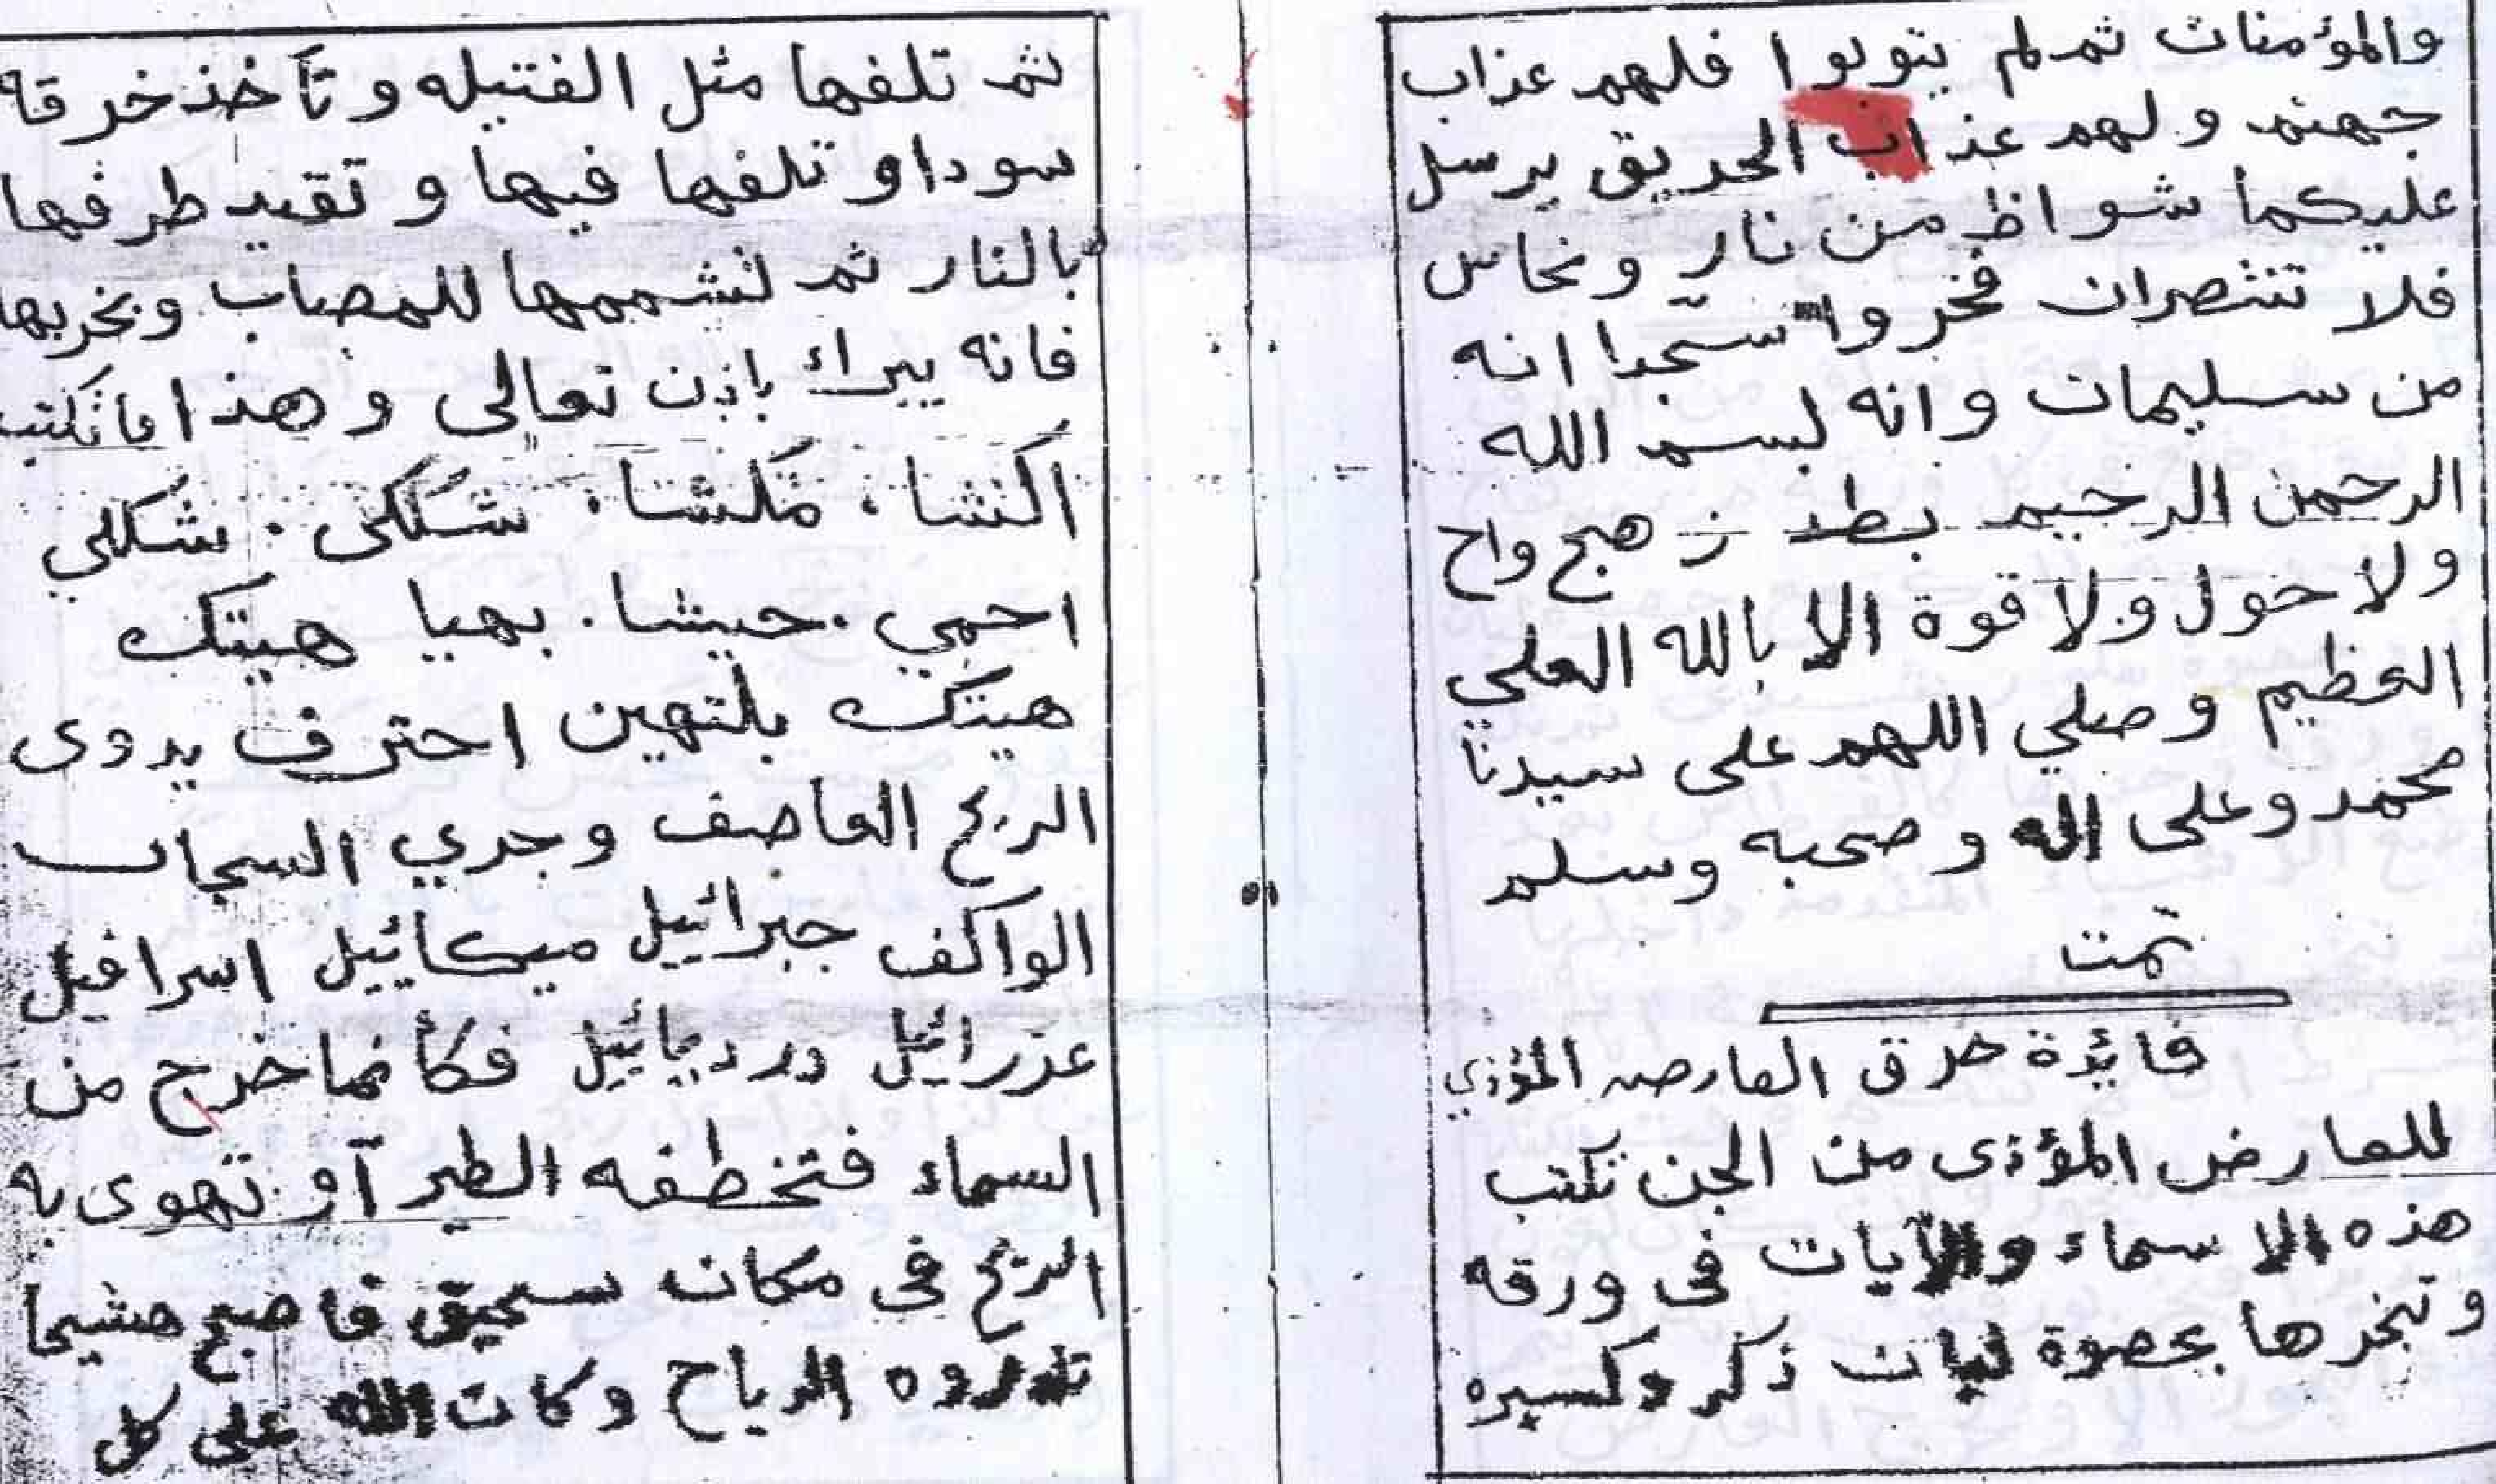 والمؤمنات ثم لم يتوبوا فلهم عذاب
جهنم ولهم عذاب الحريق يرسل
عليكما شواظ من نار ونحاس
فلا تنتصران فخروا سجدا انه
من سليمان وانه لبسم الله
الرحمن الرحيم بطد زهج واح
ولا حول ولا قوة الا بالله العلي
العظيم وصلي اللهم على سيدنا
محمد وعلى اله وصحبه وسلم
تمت
فائدة حرق العارض المؤذي
للعارض المؤذى من الجن تكتب
هذه الاسماء والآيات فى ورقه
وتبخرها بحصوة لبان ذكر وكسبره
ثم تلفها مثل الفتيله وتأخذ خرقه
سودا و تلفها فيها و تقيد طرفها
بالنار ثم تشممها للمصاب وبخربها
فانه يبراء باذن تعالى وهذا ما تكتب
اكنشا ، مكشا . شكى . شكلي
احمي . حيشا . بهيا هيتك
هيتك بلتهين احترف يدوى
الريح العاصف وجري السحاب
الواكف جبرائيل ميكائيل اسرافيل
عزرائيل دردبيائيل فكأنما خرج من
السماء فتخطفه الطير أو تهوى به
الريح فى مكان سحيق فاصبح هشيما
تذروه الرياح وكان الله على كل